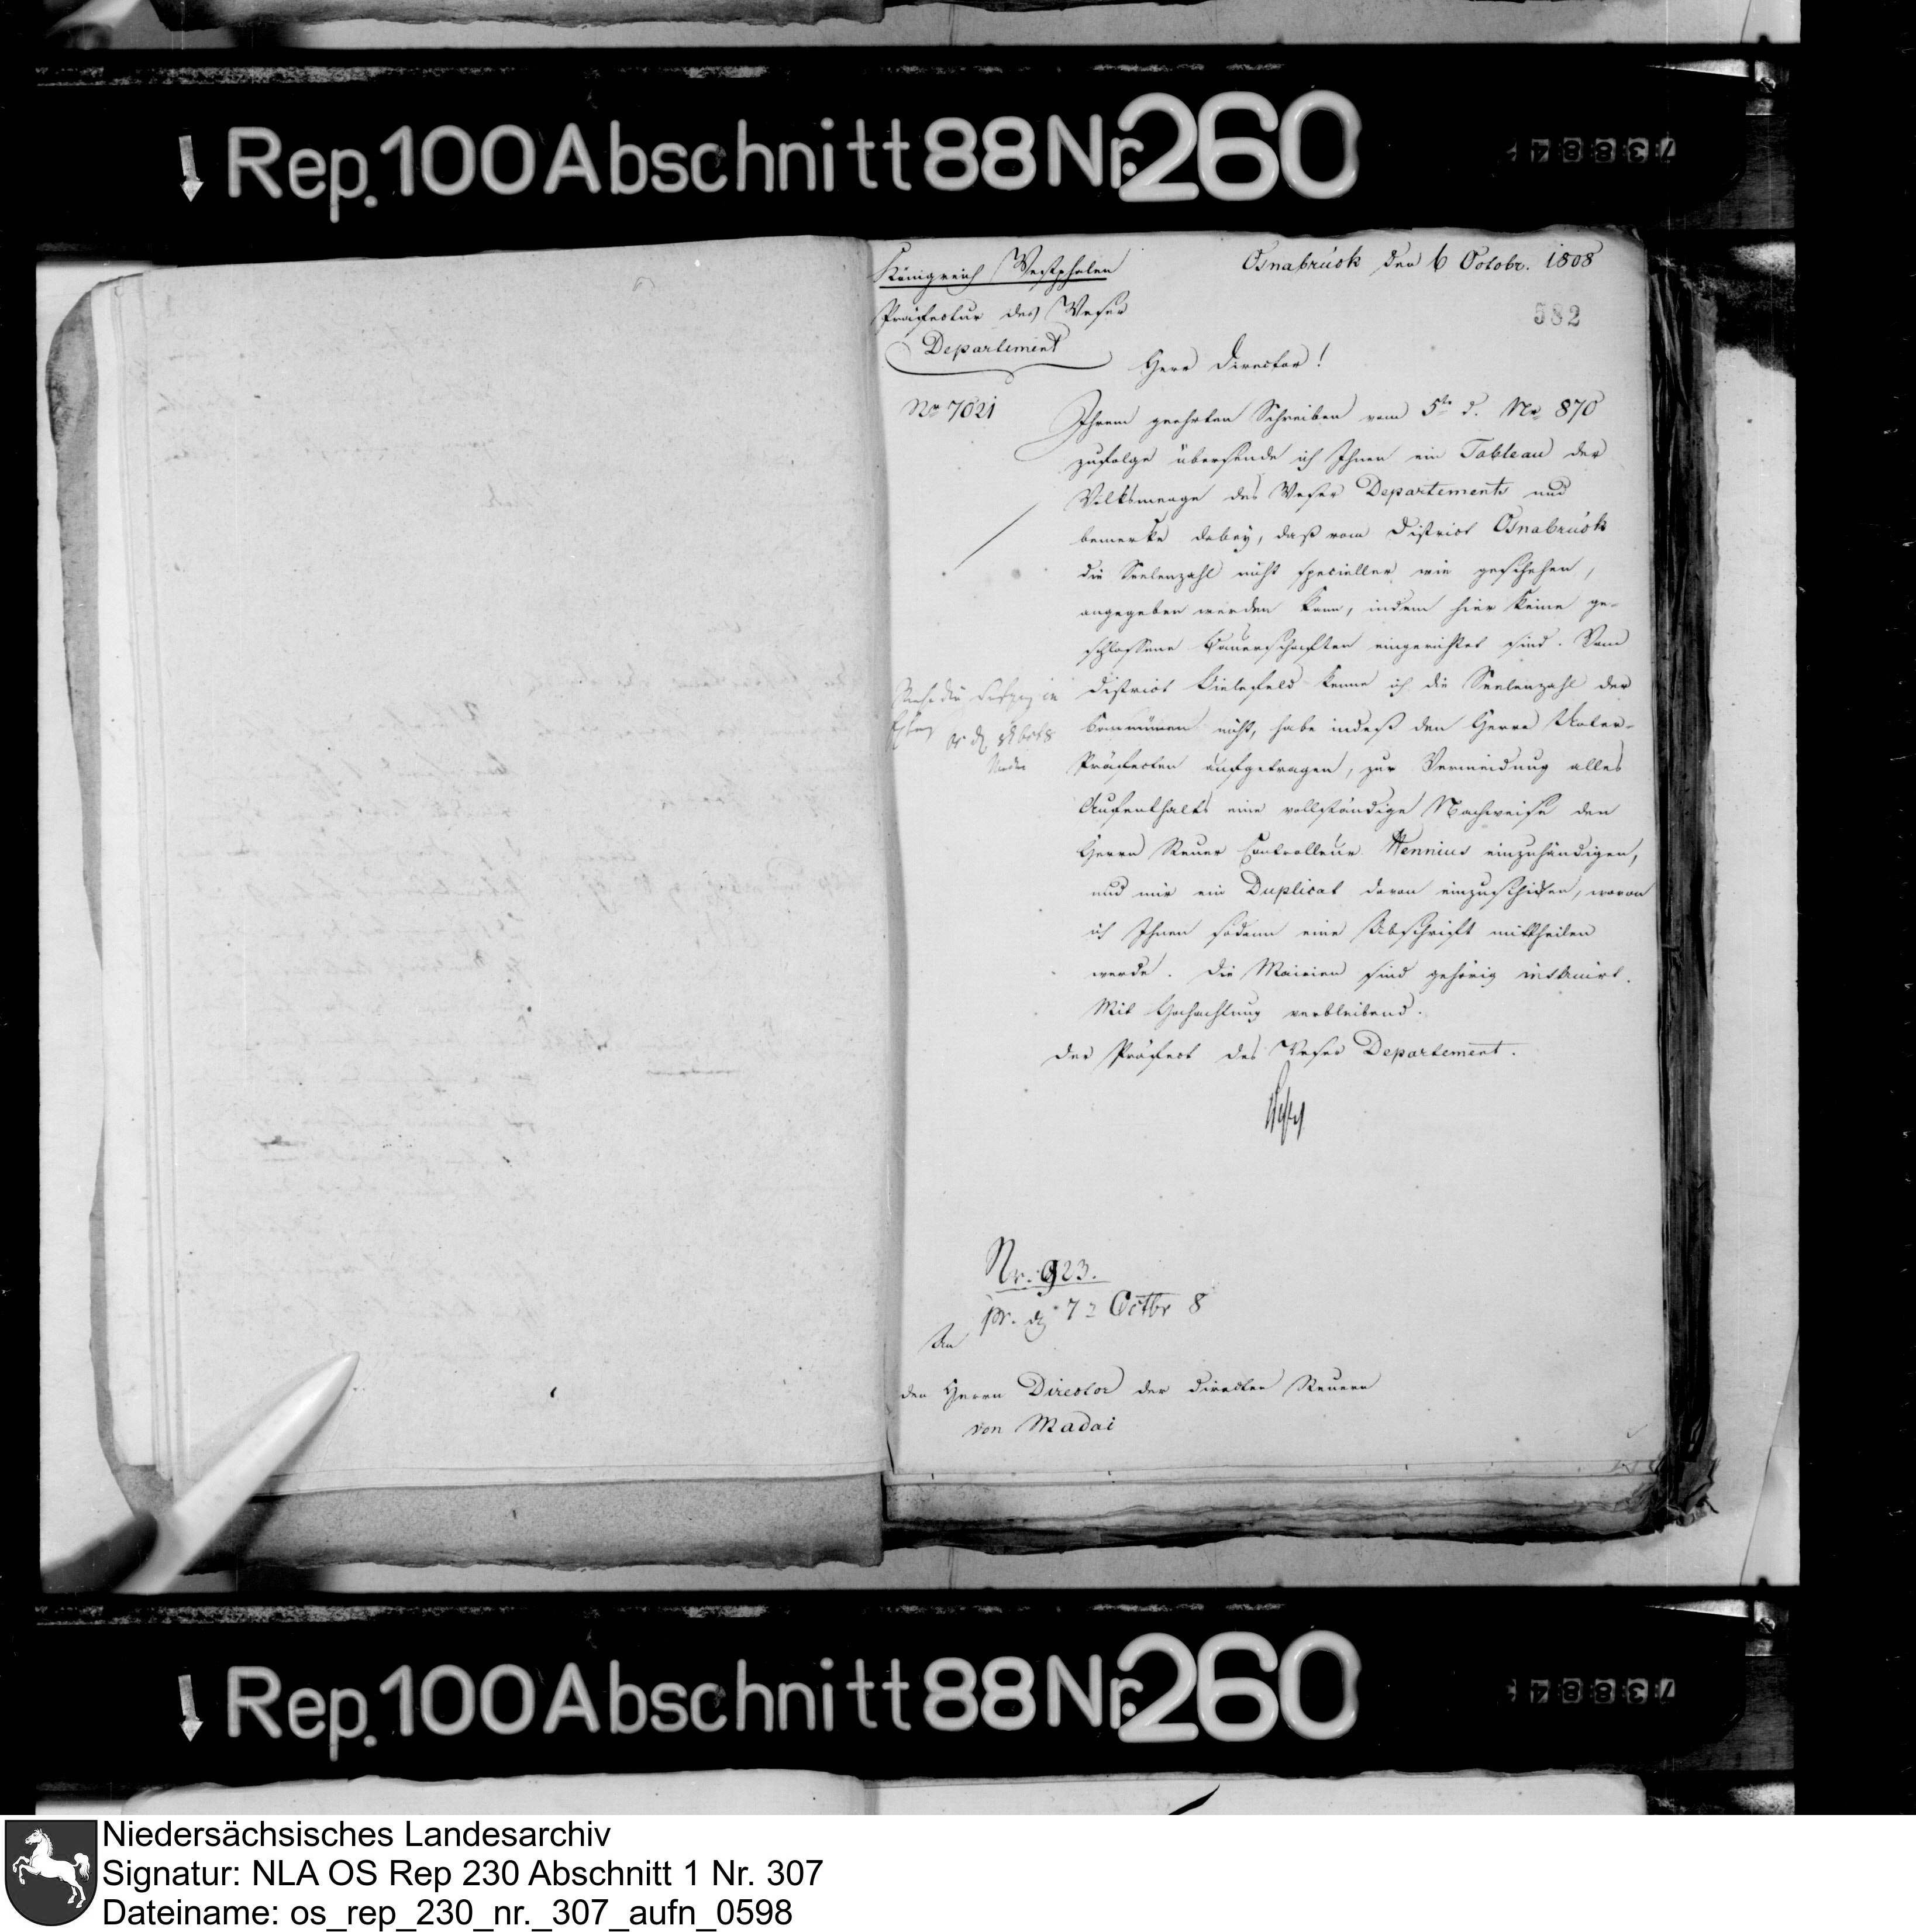 Rep. 100 Abschnitt 88 Nr. 260
Königreich Westphalen
Osnabrück den 6 Octobr. 1808
Präfectur des Weser
582
Departement
Herr Director!
No 7021
Ihrem geehrten Schreiben vom 5ten d. No 870
zufolge übersende ich Ihnen ein Tableau der
Volksmenge des Weser Departements und
bemerke dabey, daß vom District Osnabrück
die Seelenzahl nicht specieller wie geschehen,
angegeben werden kann, indem hier keine ge-
schlossene Bauerschaften eingerichtet sind. Vom
District Bielefeld kenne ich die Seelenzahl der
Communen nicht, habe indeß den Herrn Unter-
Präfecten aufgetragen, zur Vermeidung alles
Aufenthalts eine vollständige Nachweise den
Herrn Steuer Controlleur Hennius einzuhändigen,
und mir ein Duplicat davon einzuschicken, wovon
ich Ihnen sodann eine Abschrift mittheilen
werde. Die Mairien sind gehörig instruirt.
Mit Hochachtung verbleibend.
Der Präfect des Weser Departement.
Nr. 923.
pr. d 7 Octbr 8
An
den Herrn Director der directen Steuern
von Madai
Rep. 100 Abschnitt 88 Nr. 260
Niedersächsisches Landesarchiv
Signatur: NLA OS Rep 230 Abschnitt 1 Nr. 307
Dateiname: os_rep_230_nr._307_aufn_0598